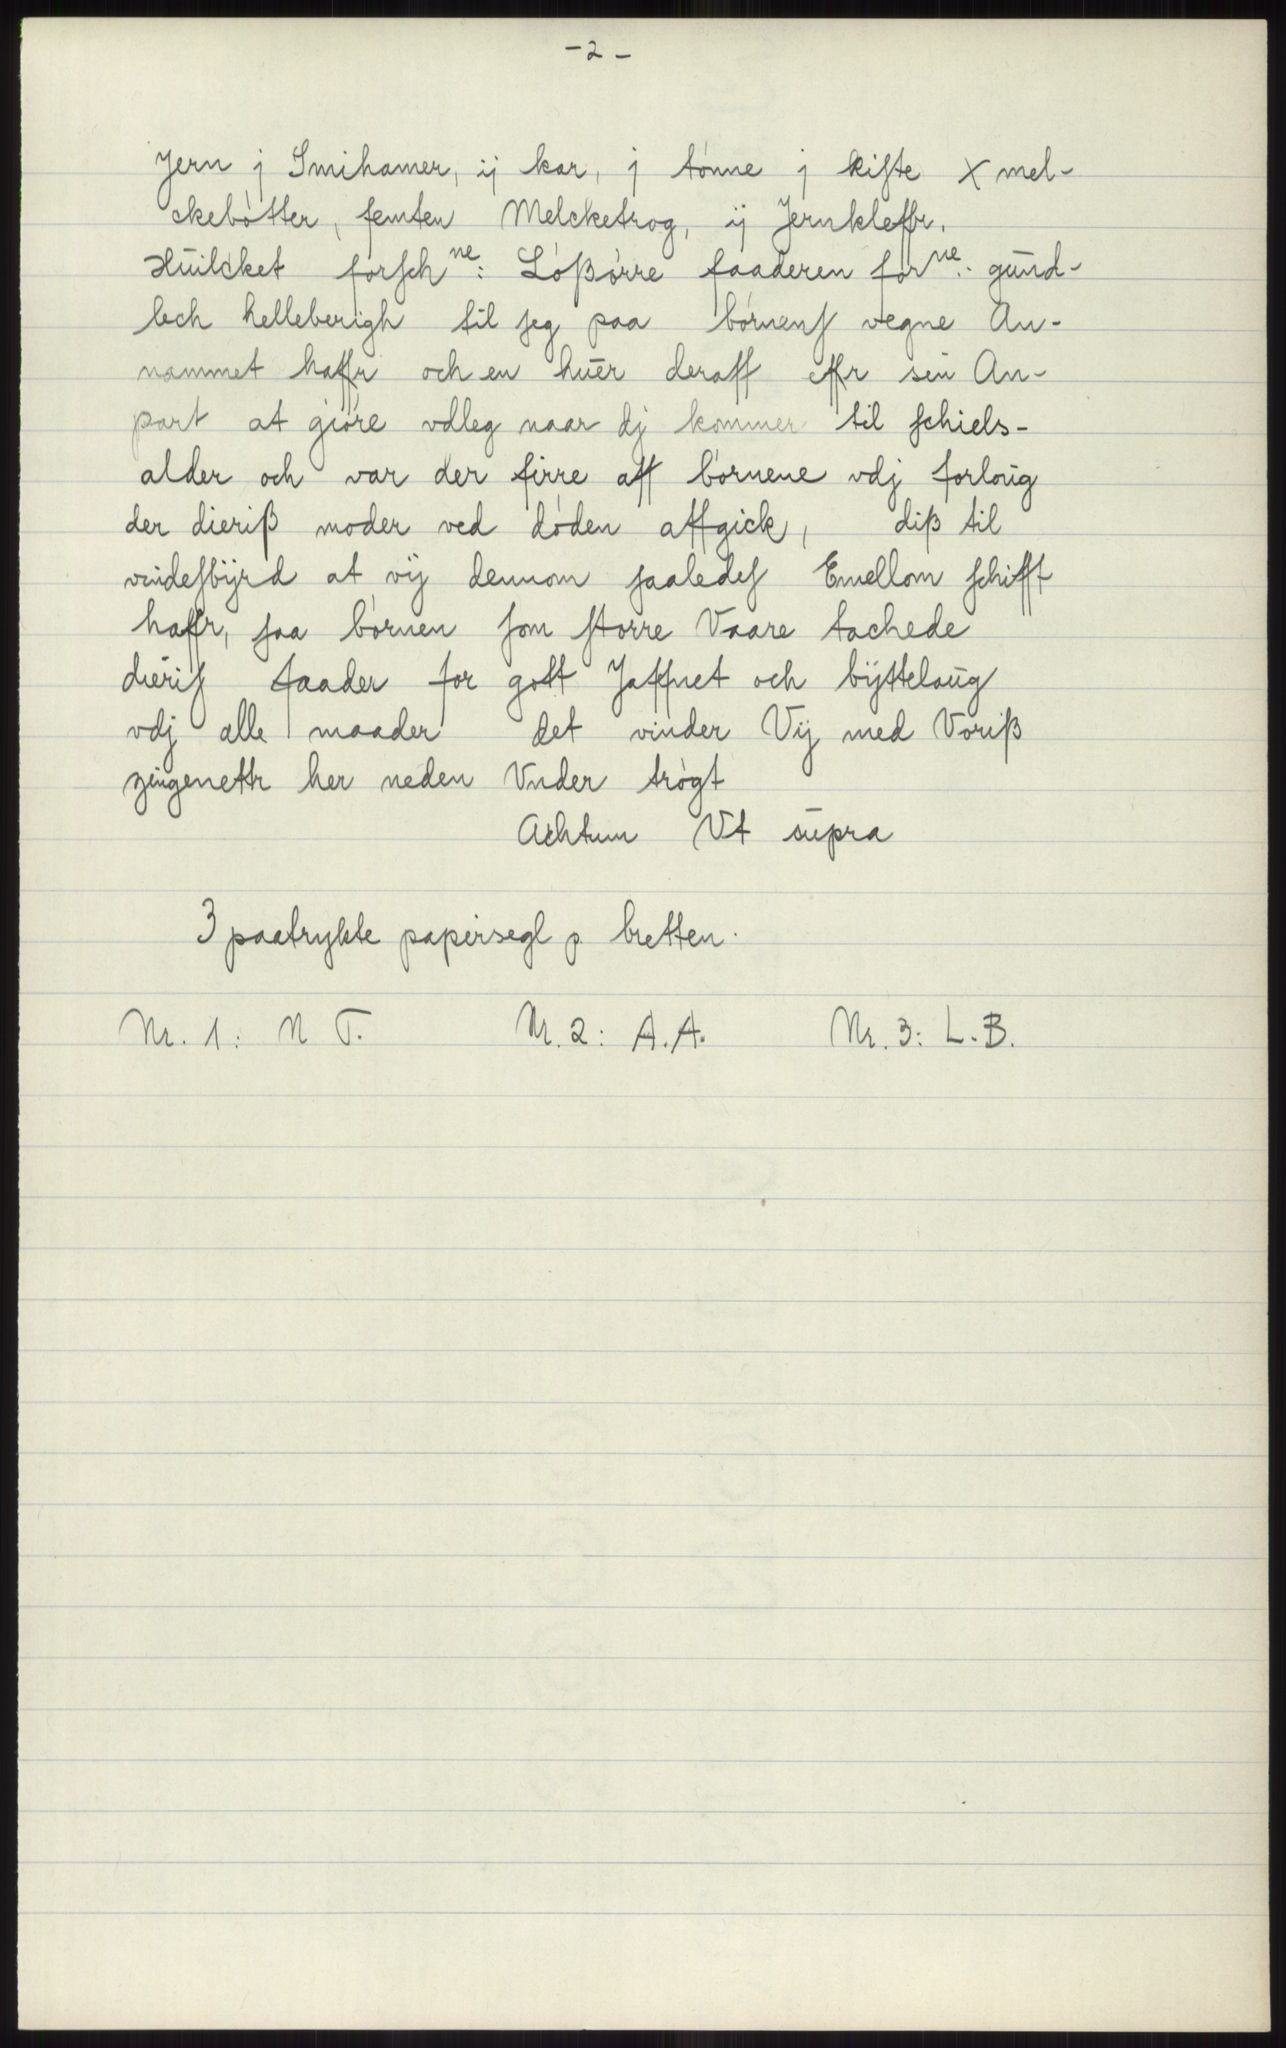 -2-
Jern j Smihamer, ij kar, j tónne j kiſte X mel-
ckebótter, femten Melcketrog, ij Jernkleffr.
Huilcket forſch ne: Lóßórre faaderen for ne: gūnd-
lech helleberigh til ſeg paa bórnenſ vegne An-
nammet haffr och en huer deraff effr sin An-
part at gióre vdleg naar dj kommer til ſchiels-
alder och var der firre aff bórnene vdj forloūg
der dieriß moder ved dóden affgick, diß til
vindeſbÿrd at vÿ dennom ſaaledeſ Emellom ſchifft
haffr, ſaa bórnen ſom ſtorre Vaare tachede
dieriſ faader for gott Jaffnet och bÿtteloūg
vdj alle maader det vinder Vÿ med Voriß
zingenettr her neden Vnder trógt
Achtum Vt sūpra
3 paatrykte papirsegl p. bretten.
Nr. 1: N T. Nr. 2: A.A. Nr. 3: L.B.